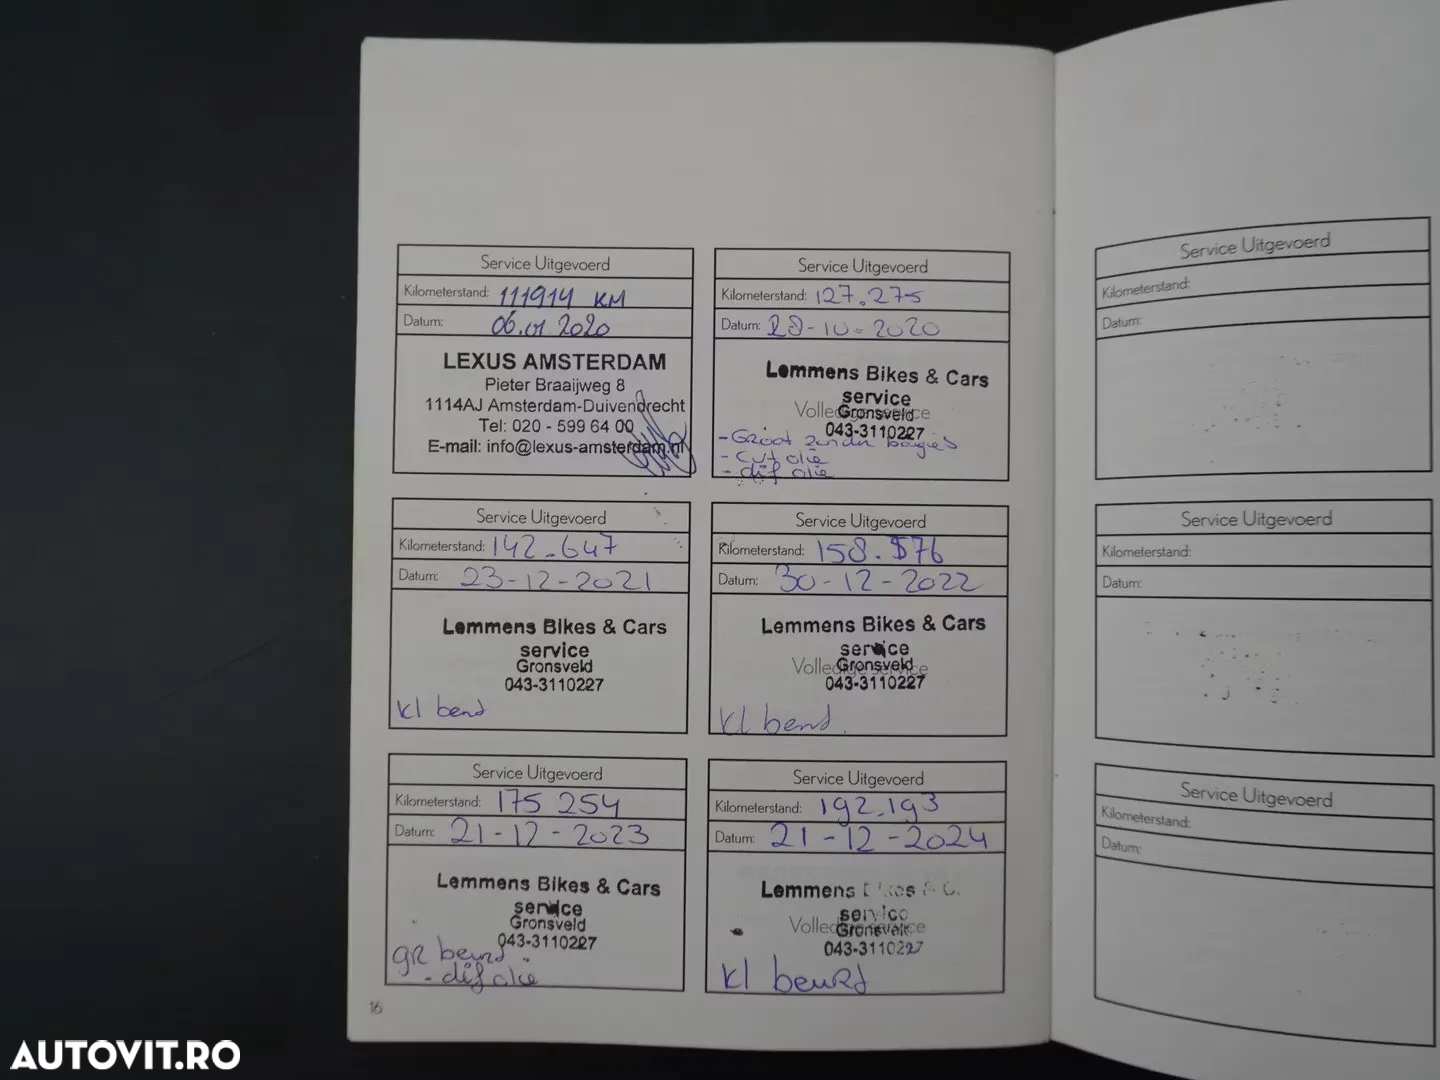 Service Uitgevoerd
Kilometerstand: 111914 KM
Datum: 06.01.2020
LEXUS AMSTERDAM
Pieter Braaijweg 8
1114AJ Amsterdam-Duivendrecht
Tel: 020 - 599 64 00
E-mail: info@lexus-amsterdam.nl
Service Uitgevoerd
Kilometerstand: 127.275
Datum: 28-10-2020
Lemmens Bikes & Cars
service
Volledige service
Gronsveld
043-3110227
- Groot zonder bougies
- cvt olie
- dif olie
Service Uitgevoerd
Kilometerstand: 142.647
Datum: 23-12-2021
Lemmens Bikes & Cars
service
Gronsveld
043-3110227
kl beurt
Service Uitgevoerd
Kilometerstand: 158.576
Datum: 30-12-2022
Lemmens Bikes & Cars
service
Volledige service
Gronsveld
043-3110227
kl beurt.
Service Uitgevoerd
Kilometerstand: 175 254
Datum: 21-12-2023
Lemmens Bikes & Cars
service
Gronsveld
043-3110227
gR beurt
- dif olie
Service Uitgevoerd
Kilometerstand: 192.193
Datum: 21-12-2024
Lemmens Bikes & C
service
Volledige service
Gronsveld
043-3110227
kl beurt
16
Service Uitgevoerd
Kilometerstand:
Datum:
Service Uitgevoerd
Kilometerstand:
Datum:
Service Uitgevoerd
Kilometerstand:
Datum:
AUTOVIT.RO